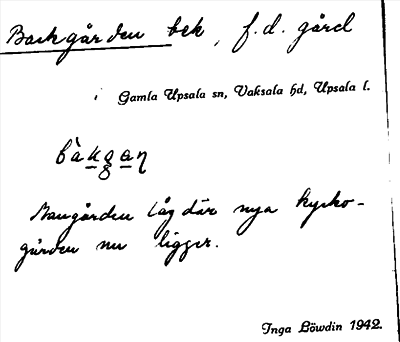 Backgården bek, f.d. gård
i Gamla Upsala sn, Vaksala hd, Upsala l.
bàkgan
Bakgården låg där nya kyrko-
gården nu ligger.
Inga Löwdin 1942.